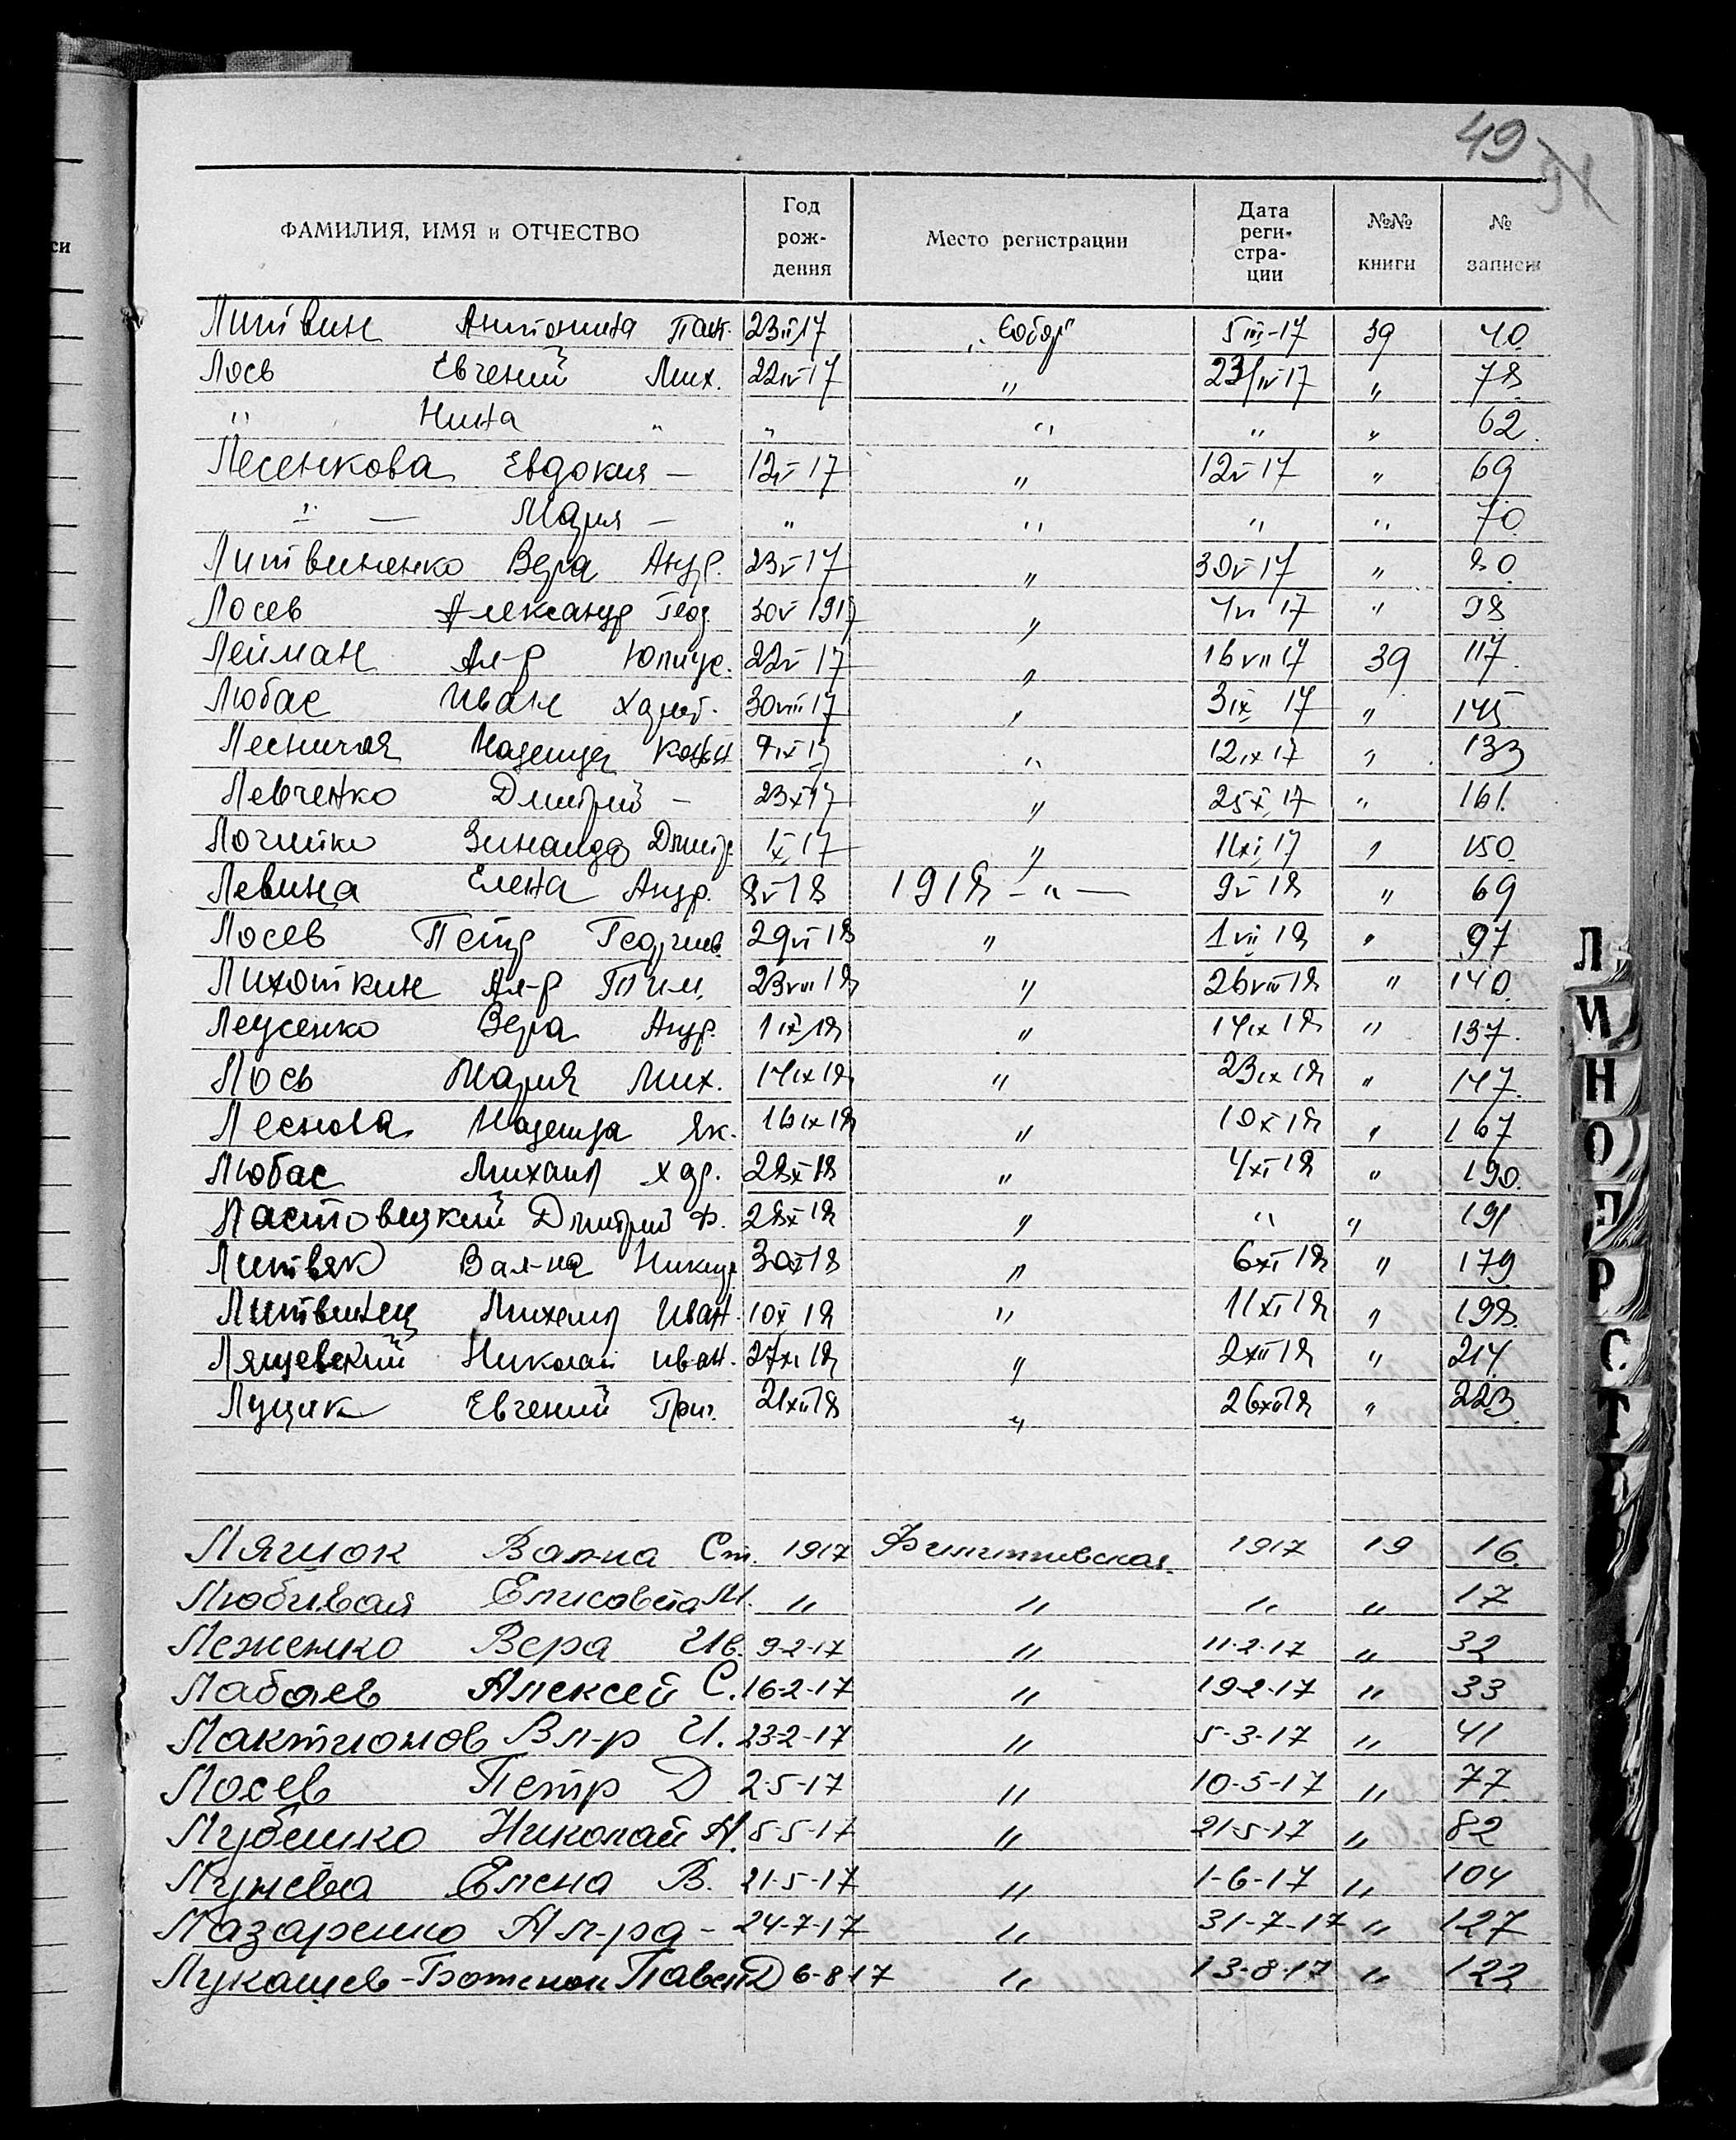 49
91
ФАМИЛИЯ, ИМЯ и ОТЧЕСТВО Год рож- дения Место регистрации Дата реги- стра- ции №№ книги № записи
Литвин Антонина Пант. 23 II 17 „Собор" 5 III-17 39 40.
Лось Евгений Мих. 22 IV 17 " 23/IV 17 " 78.
" Нина " " " " " 62.
Лесенкова Евдокия — 12 V 17 " 12 V 17 " 69
" — Мария — " " " " 70.
Литвиненко Вера Андр. 23 V 17 " 30 V 17 " 80.
Лосев Александр Геор. 30 V 1917 " 4 VI 17 " 98
Лейман Ал-р 22 V 17 " 16 VII 17 39 117.
Любас Иван 30 VIII 17 " 3 IX 17 " 145
Лесничая Надежда 9 IX 17 " 12 IX 17 " 133
Левченко Дмитрий — 23 X 17 " 25 X 17 " 161.
Зинаида Дмитр. 1 X 17 " 11 XI 17 " 150.
Левина Елена Андр. 8 V 18 1918 — " — 9 V 18 " 69
Лосев Петр Георгиев. 29 VI 18 " 1 VII 18 " 97
Лихоткин Ал-р Тим. 23 VIII 18 " 26 VIII 18 " 140.
Леусенко Вера Андр. 1 IX 18 " 14 IX 18 " 137.
Лось Мария Мих. 14 IX 18 " 23 IX 18 " 147.
Леснова Надежда Як. 16 IX 18 " 10 X 18 " 167
Любас Михаил Хар. 28 X 18 " 4 XI 18 " 190.
Ластовецкий Дмитрий Ф. 28 X 18 " " " 191
Литвяк Вал-на Никид 30 X 18 " 6 XI 18 " 179
Литвинец Михаил Иван. 10 X 18 " 11 XI 18 " 198.
Лящевский Николай Иван. 27 XI 18 " 2 XII 18 " 214.
Луцик Евгений Григ. 21 XII 18 " 26 XII 18 " 223.
Лягиок Вал-на Ст. 1917 Филипповская 1917 19 16.
Любивая Елисовета М. " " " " 17
Леженко Вера Ив. 9-2-17 " 11-2-17 " 32
Лабаев Алексей С. 16-2-17 " 19-2-17 " 33
Лактионов Вл-р И. 23-2-17 " 5-3-17 " 41
Лосев Петр Д 2-5-17 " 10-5-17 " 77.
Лубешко Николай Н. 5-5-17 " 21-5-17 " 82
Лунева Елена В. 21-5-17 " 1-6-17 " 104
Лазаренко Ал-ра - 24-7-17 " 31-7-17 " 127
Лукашев- Павел Д 6-8-17 " 13-8-17 " 122
Л
И
Н
О
П
Р
С
Т